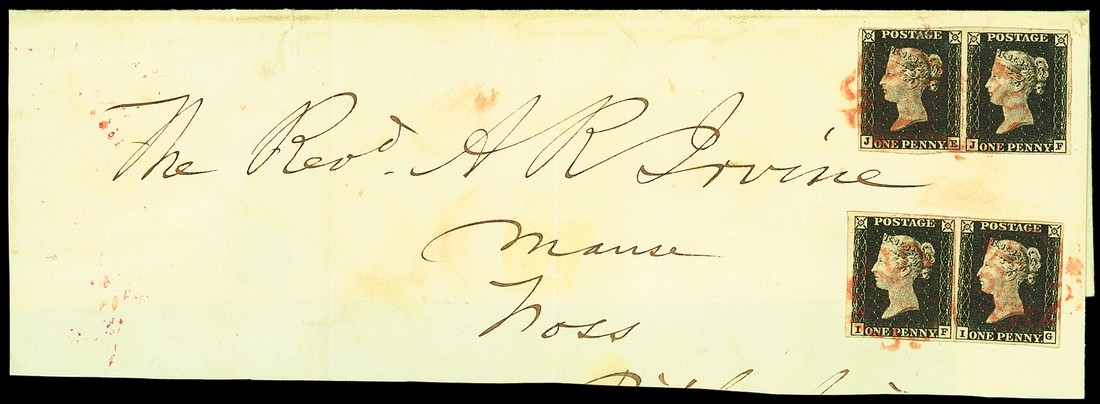 The Revd. A R Irvine
Manse
Foss
POSTAGE POSTAGE
J ONE PENNY E J ONE PENNY F
POSTAGE POSTAGE
I ONE PENNY F I ONE PENNY G